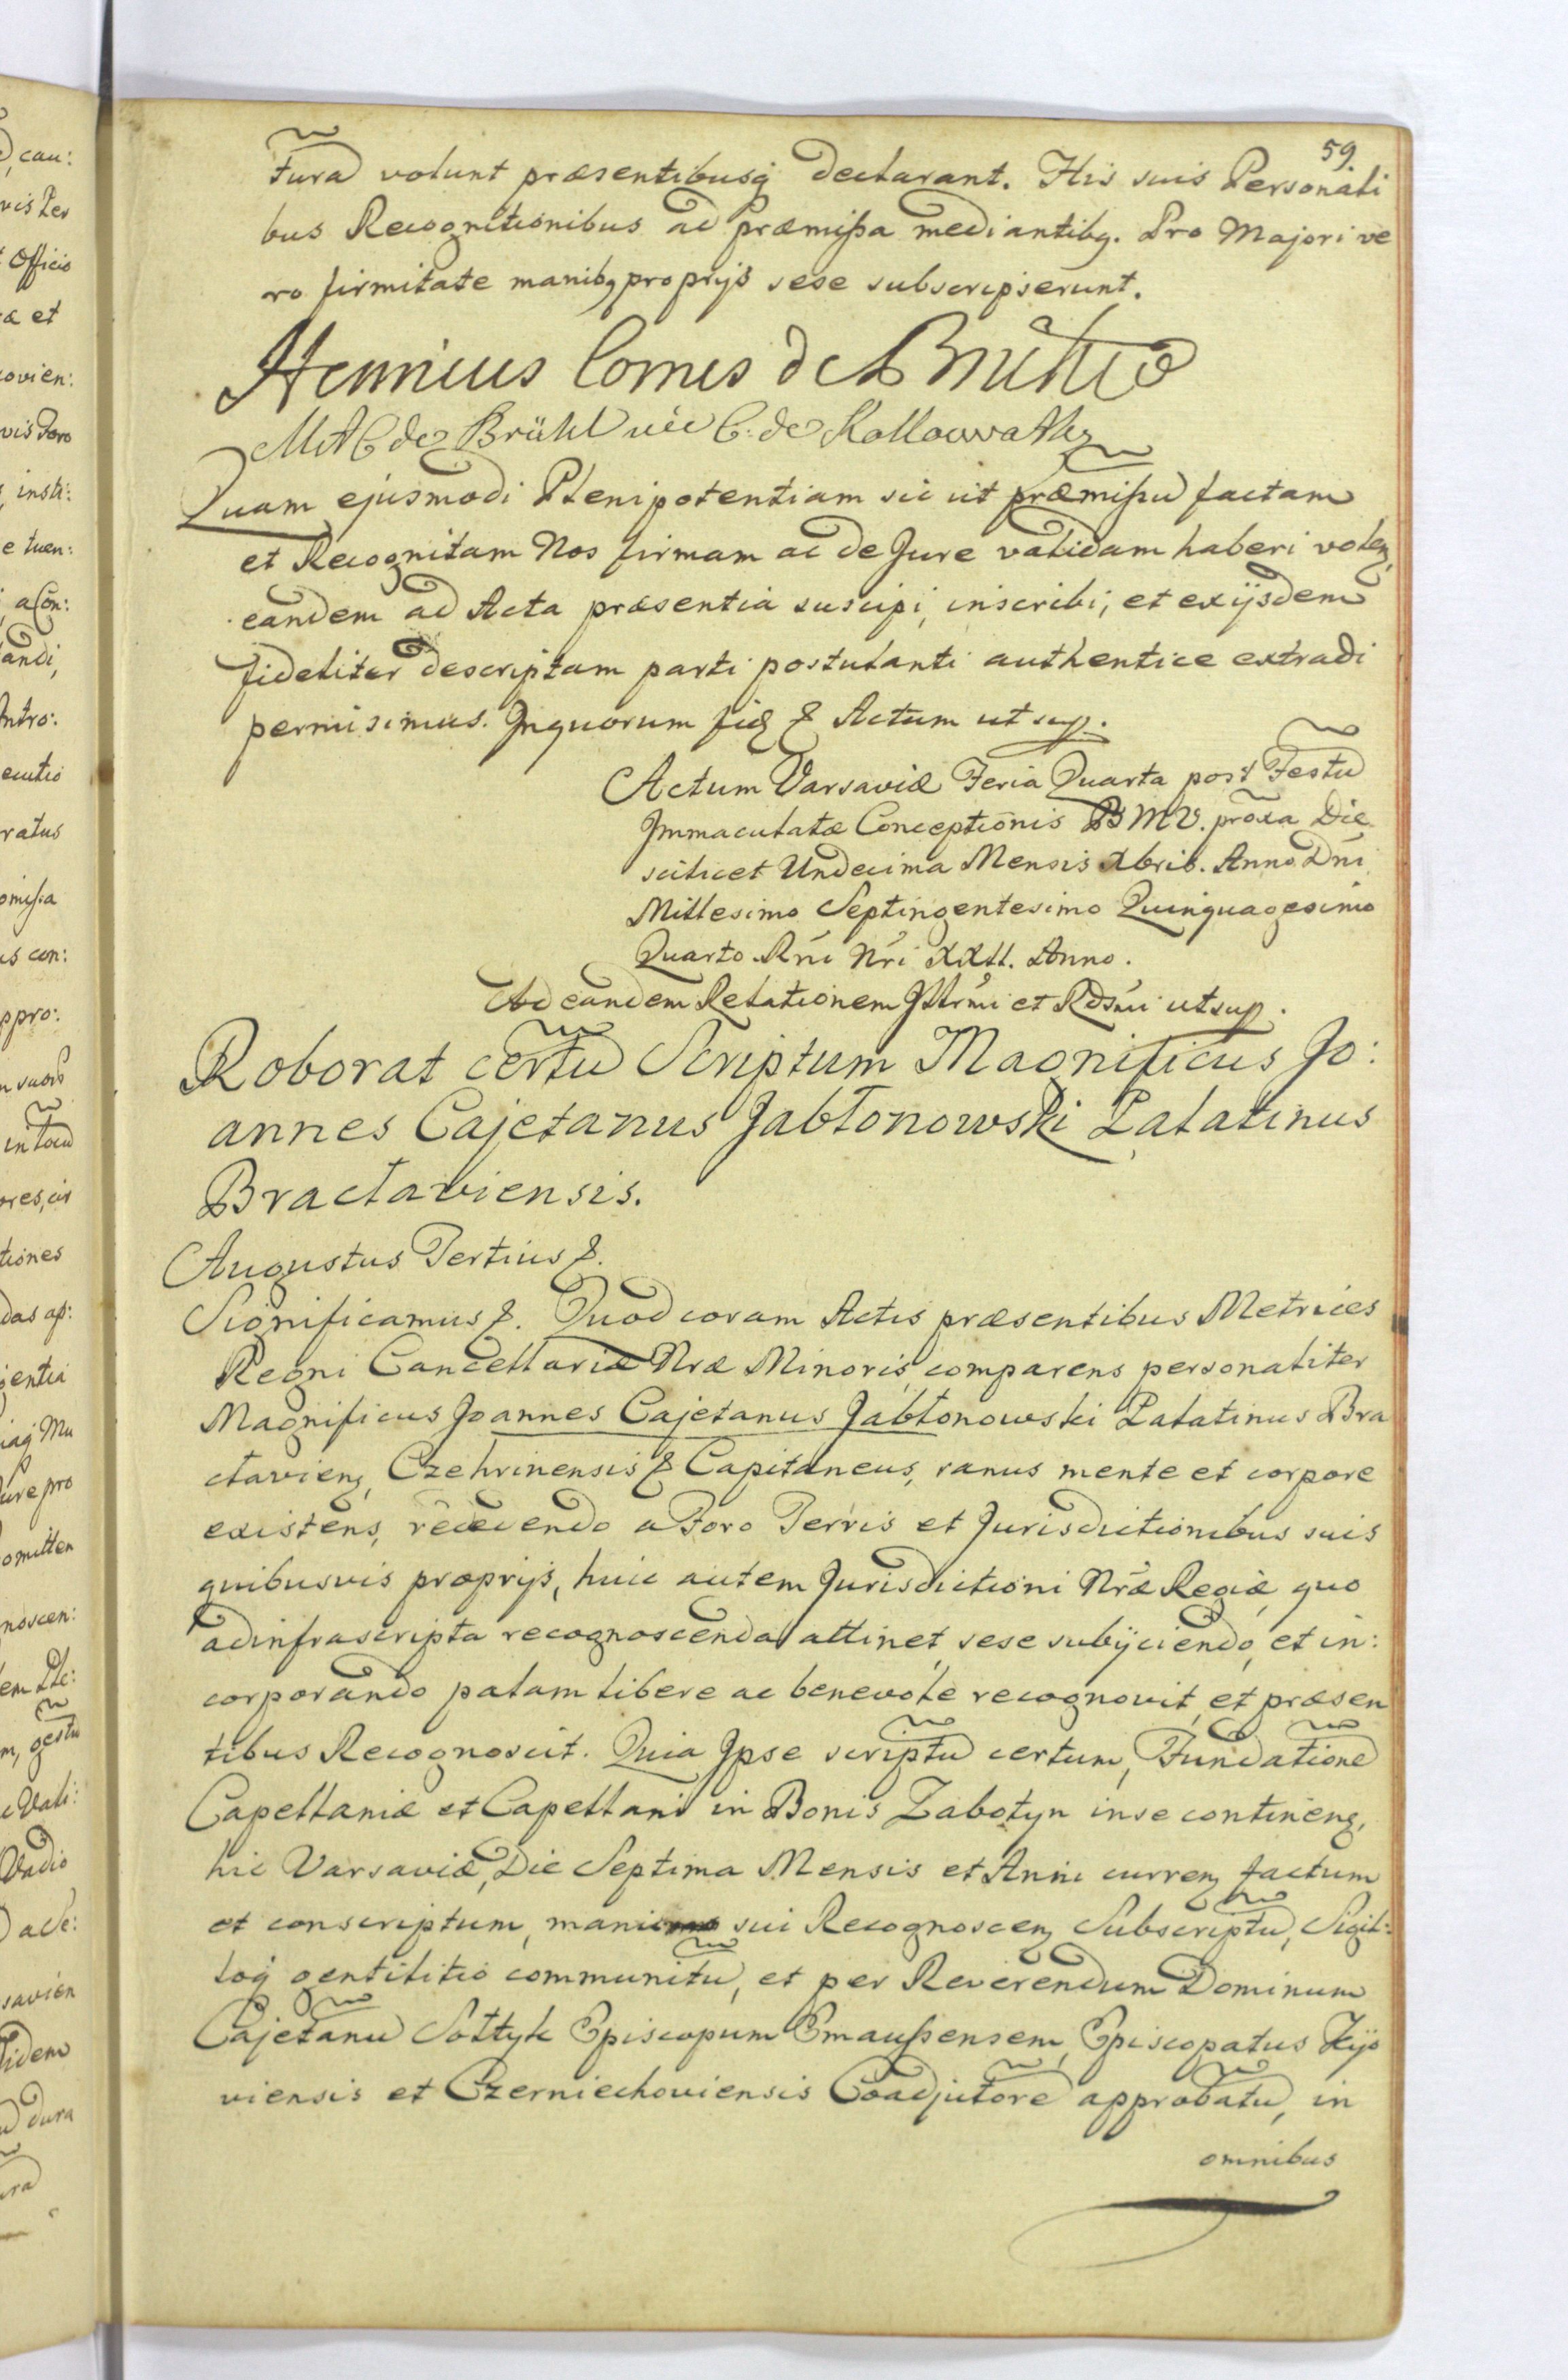 59.
tura volunt præsentibusq declarant. His suis Personali
bus Recognitionibus ad præmißa mediantibq. Pro Majori ve
ro firmitate manibq proprijs sese subscripserunt.
Henricus Comes de Brühl
MAC de Brühl née C: de Kollowrath
Quam ejusmodi Plenipotentiam sic ut præmißũ factam
et Recognitam Nos firmam ac de Jure validam haberi volen,
eandem ad Acta præsentia suscipi, inscribi, et exijsdem
fideliter descriptam parti postulanti authentice extradi
permisimus. Inquorum fid & Actum ut sup.
Actum Varsaviæ Feria Quarta post Festũ
Immaculatæ Conceptionis B M V. proxa Die
scilicet Undecima Mensis Xbris. Anno Dni
Millesimo Septingentesimo Quinquagesimo
Quarto Rni Nri XXII. Anno.
Ad eandem Relationem Illrmi et Rdsmi utsup.
Roborat certũ Scriptum Magnificus Jo:
annes Cajetanus Jabłonowski Palatinus
Braclaviensis.
Augustus Tertius &.
Significamus &. Quod coram Actis præsentibus Metrices
Regni Cancellariæ Nræ Minoris, comparens personaliter
Magnificus Joannes Cajetanus Jabłonowski Palatinus Bra
clavien, Czehrinensis & Capitaneus, sanus mente et corpore
existens, recedendo a Foro Terris et Jurisdictionibus suis
quibusvis proprijs, huic autem Jurisdictioni Nræ Regiæ, quo
adinfrascripta recognoscenda attinet, sese subijciendo, et in:
corporando palam libere ac benevole recognovit, et præsen
tibus Recognoscit. Quia Ipse scriptũ certum, Fundationẽ
Capellaniæ et Capellani in Bonis Zabotyn inse continen,
hic Varsaviæ, Die Septima Mensis et Anni curren factum
et conscriptum, sui Recognoscen Subscriptũ, Sigil:
loq gentilitio communitũ, et per Reverendum Dominum
Cajetanũ Sołtyk Episcopum Emaußensem, Episcopatus Kijo
viensis et Czerniechoviensis Coadjutorẽ approbatũ, in
omnibus